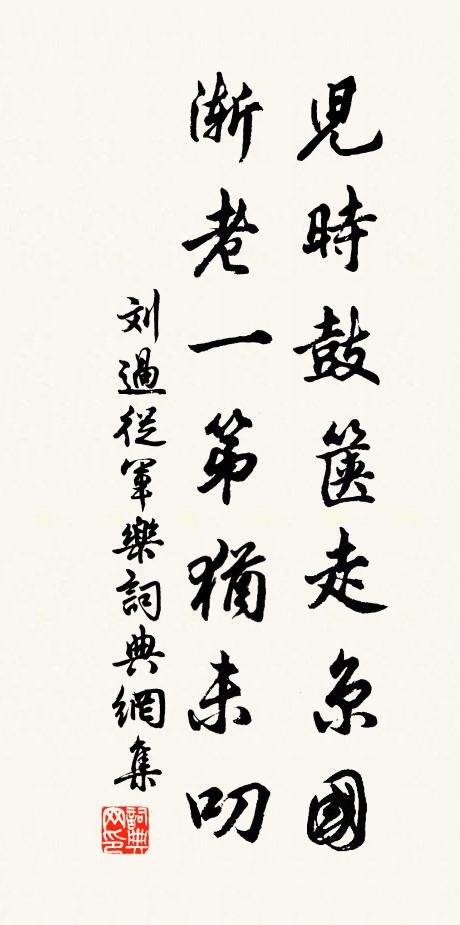 兒時鼓篋走京國
漸老一第猶未叨
刘過從軍樂詞典網集
詞典网印